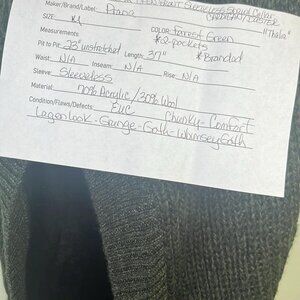 Sleeveless Shawl Collar
Maker/Brand/Label: Prana "Thalia"
SIZE: XL COLOR: Forrest Green
Measurements * 2 pockets
Pit to Pit: 23" unstretched Length: 37" * Branded
Waist: N/A Inseam: N/A Rise: N/A
Sleeve: Sleeveless
Material: 70% Acrylic / 30% Wool
Condition/Flaws/Defects: EUC Chunky - Comfort
Lagenlook - Grunge - Goth - Whimsey Goth